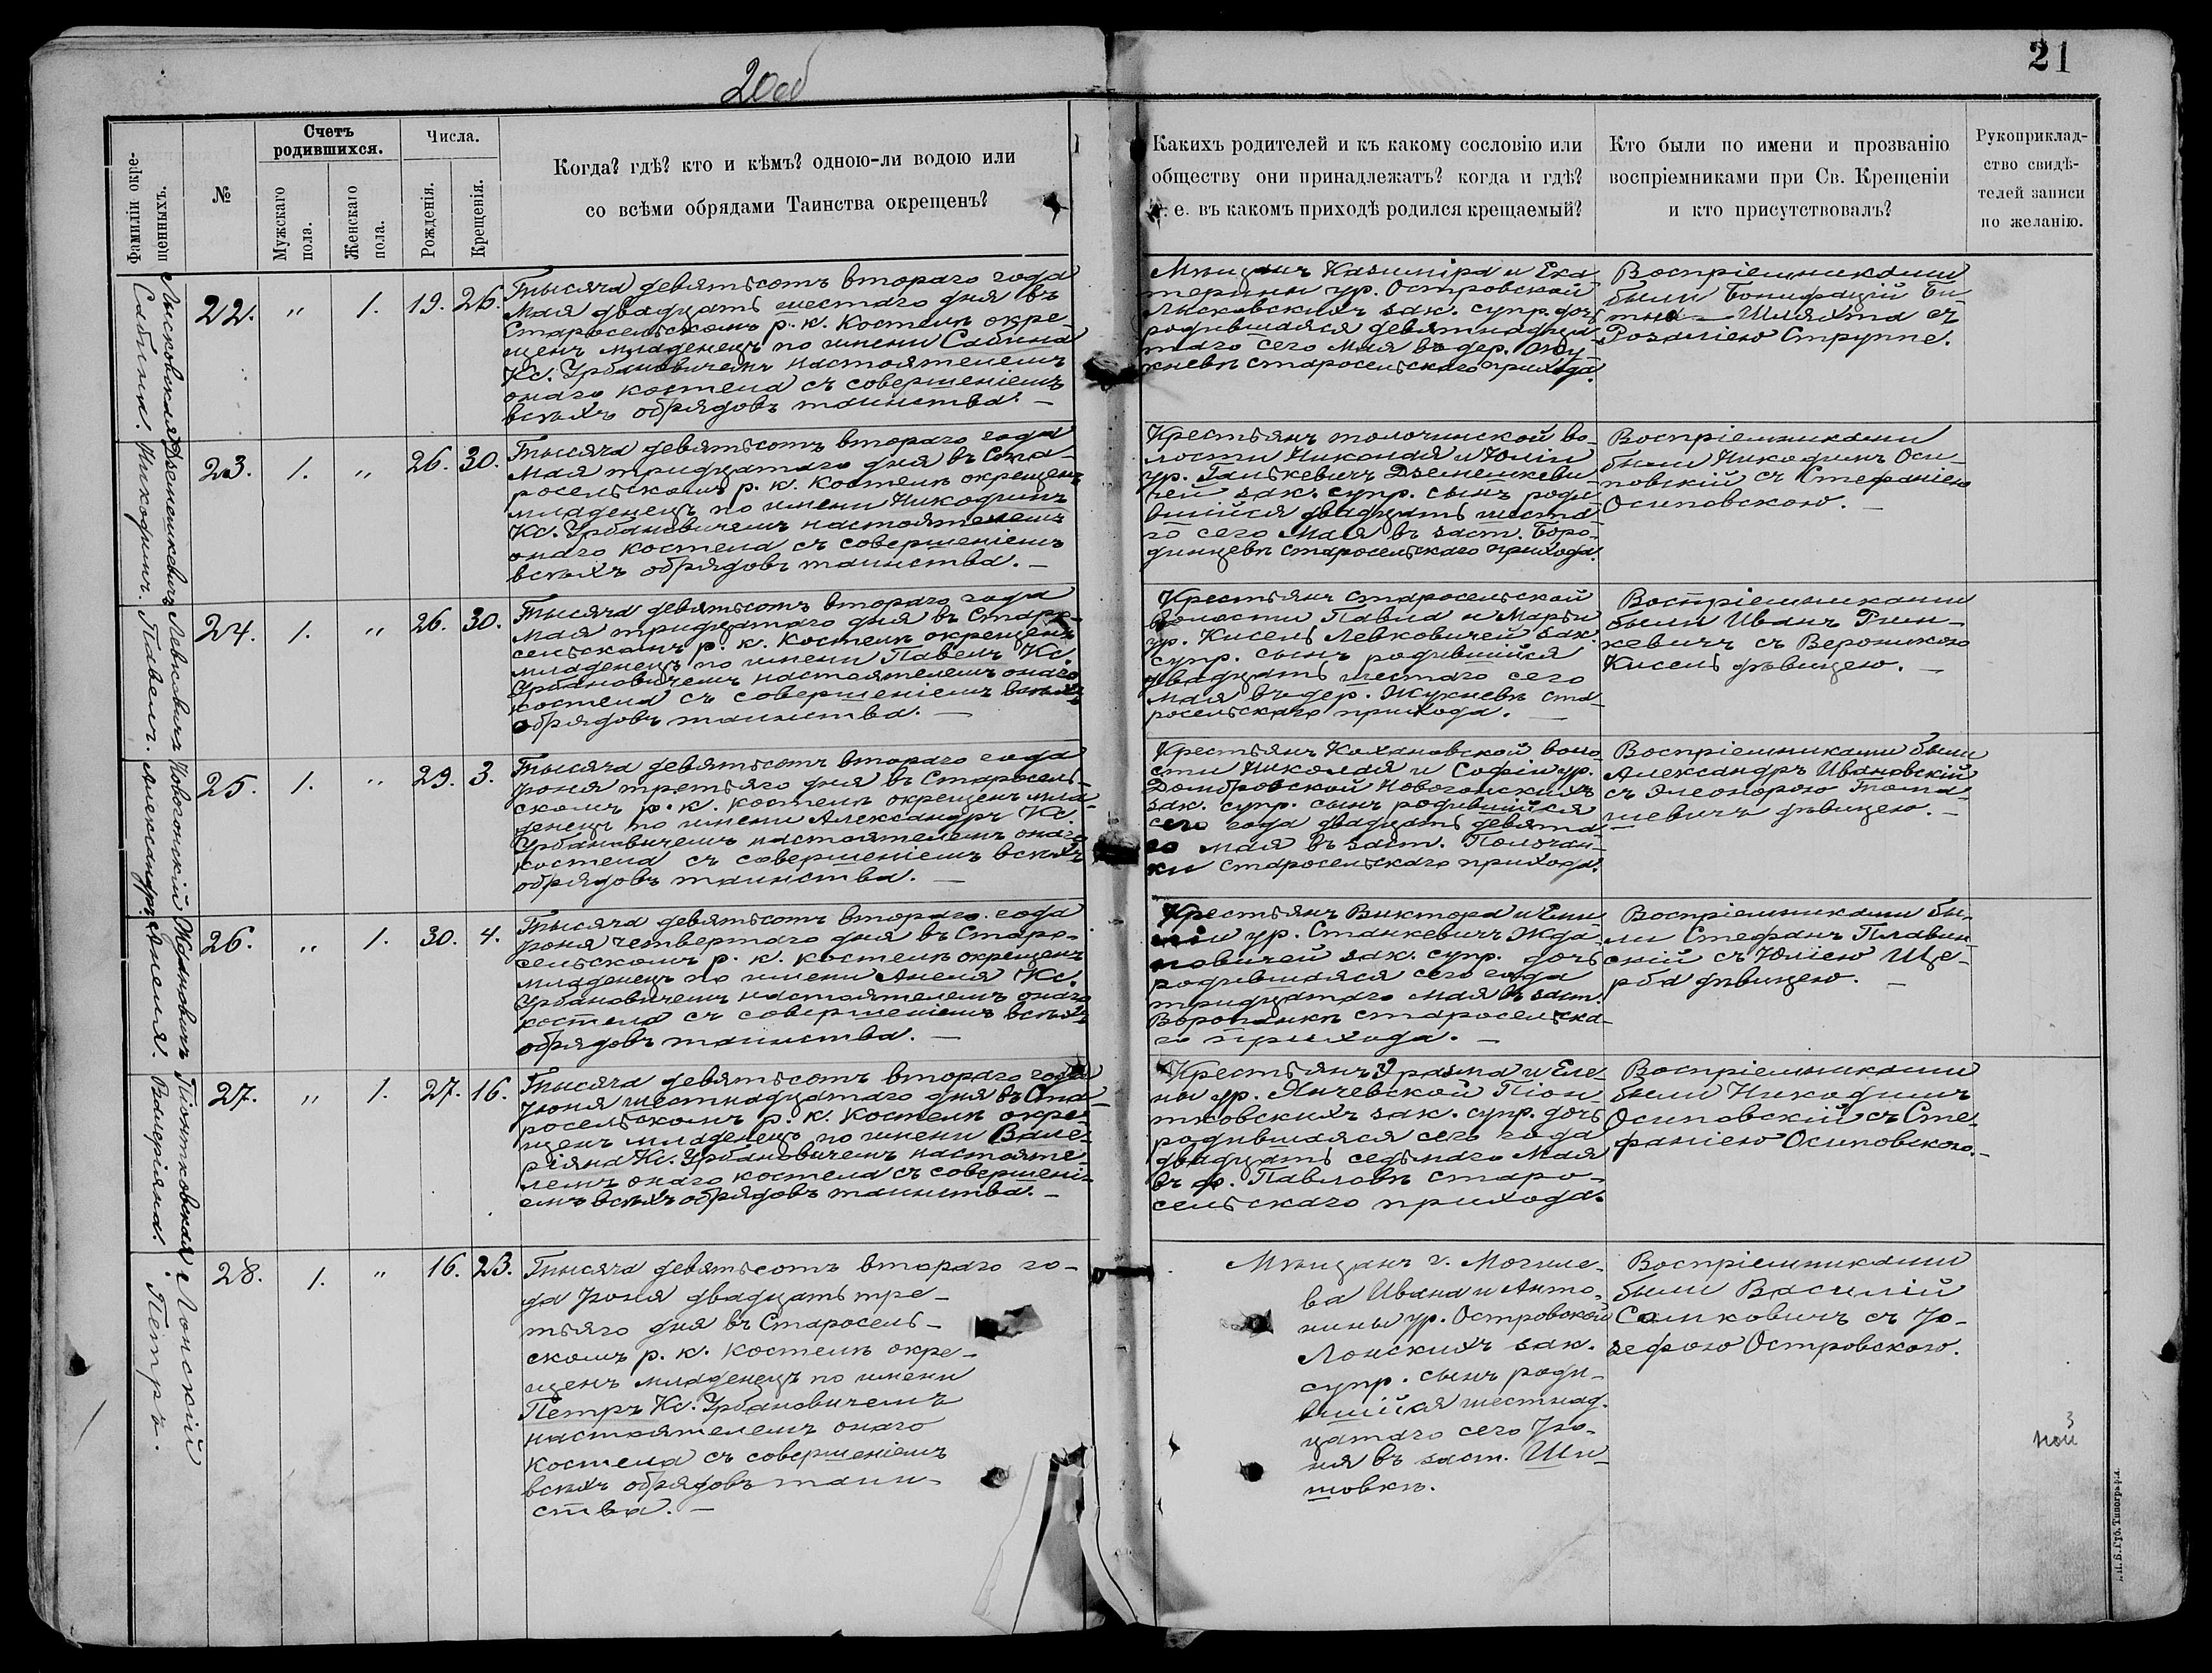 20об
21
Фамиліи окре-
щенныхъ.
№
Счетъ
родившихся.
Мужскаго
пола.
Женскаго
пола.
Числа.
Рожденія.
Крещенія.
Когда? гдѣ? кто и кѣмъ? одною-ли водою или
со всѣми обрядами Таинства окрещенъ?
Какихъ родителей и къ какому сословію или
обществу они принадлежатъ? когда и гдѣ?
т. е. въ какомъ приходѣ родился крещаемый?
Кто были по имени и прозванію
воспріемниками при Св. Крещеніи
и кто присутствовалъ?
Рукоприклад-
ство свидѣ-
телей записи
по желанію.
Лысковская
Сабина.
22. " 1. 19. 26.
Тысяча девятьсотъ втораго года
Мая двадцать шестаго дня въ
Старосельскомъ р. к. Костелѣ окре-
щенъ младенецъ по имени Сабина
Кс. Урбановичемъ настоятелемъ
онаго костела съ совершеніемъ
всѣхъ обрядовъ таинства. —
Мѣщанъ Казиміра и Ека-
терины ур. Островской
Лысковскихъ зак. супр. дочь
родившаяся девятнадца-
таго сего Мая въ дер. Жу-
кневѣ старосельскаго прихода.
Воспріемниками
были Бонифацій Би-
тна-Шляхта съ
Розаліею Струппе.
Дземешкевичъ
Никодимъ.
23. 1. " 26. 30.
Тысяча девятьсотъ втораго года
Мая тридцатаго дня въ Ста-
росельскомъ р. к. Костелѣ окрещенъ
младенецъ по имени Никодимъ
Кс. Урбановичемъ настоятелемъ
онаго костела съ совершеніемъ
всѣхъ обрядовъ таинства. —
Крестьянъ толочинской во-
лости Никодая и Юліи
ур. Танькевичъ Дземешкеви-
чей зак. супр. сынъ роди-
вшійся двадцать шеста-
го сего Мая въ заст. Боро-
динцевѣ старосельскаго прихода.
Воспріемниками
были Никодимъ Оси-
повскій съ Стефаніею
Осиповскою. —
Левковичъ
Павелъ.
24. 1. " 26. 30.
Тысяча девятьсотъ втораго года
Мая тридцатаго дня въ Старо-
сельскомъ р. к. Костелѣ окрещенъ
младенецъ по имени Павелъ Кс.
Урбановичемъ настоятелемъ онаго
костела съ совершеніемъ всѣхъ
обрядовъ таинства. —
Крестьянъ старосельской
волости Павла и Марьи
ур. Кисель Левковичей зак.
супр. сынъ родившійся
двадцать шестаго сего
мая въ дер. Жукневѣ ста-
росельскаго прихода. —
Воспріемниками
были Иванъ Рин-
кевичъ съ Вероникою
Кисель дѣвицею. —
Новогонскій
Александръ.
25. 1. " 29. 3.
Тысяча девятьсотъ втораго года
Іюня третьяго дня въ Старосель-
скомъ р. к. костелѣ окрещенъ мла-
денецъ по имени Александръ Кс.
Урбановичемъ настоятелемъ онаго
костела съ совершеніемъ всѣхъ
обрядовъ таинства. —
Крестьянъ Кохановской воло-
сти Николая и Софіи ур.
Домбровской Новогонскихъ
зак. супр. сынъ родившійся
сего года двадцать девята-
го мая въ заст. Полочан-
ки старосельскаго прихода.
Воспріемниками были
Александръ Ивановскій
съ Элеонорою Тома-
шевичъ дѣвицею. —
Ждановичъ
Анеля.
26. " 1. 30. 4.
Тысяча девятьсотъ втораго года
Іюня четвертаго дня въ Старо-
сельскомъ р. к. костелѣ окрещенъ
младенецъ по имени Анеля Кс.
Урбановичемъ настоятелемъ онаго
костела съ совершеніемъ всѣхъ
обрядовъ таинства. —
Крестьянъ Виктора и Эми-
ліи ур. Станкевичъ Жда-
новичей зак. супр. дочь
родившаяся сего года
тридцатаго мая въ заст.
Воропанкѣ старосельска-
го прихода. —
Воспріемниками бы-
ли Стефанъ Плавин-
скій съ Юліею Ще-
рба дѣвицею. —
Піонтковская
Валеріяна.
27. " 1. 27. 16.
Тысяча девятьсотъ втораго года
Іюня шестнадцатаго дня въ Ста-
росельскомъ р. к. Костелѣ окре-
щенъ младенецъ по имени Вале-
ріяна Кс. Урбановичемъ настояте-
лемъ онаго костела съ совершені-
емъ всѣхъ обрядовъ таинства. —
Крестьянъ Эразма и Еле-
ны ур. Янчевской Піон-
тковскихъ зак. супр. дочь
родившаяся сего года
двадцать седьмаго Мая
въ ф. Павловѣ старо-
сельскаго прихода.
Воспріемниками
были Никодимъ
Осиповскій съ Сте-
фаніею Осиповскою. —
Лонскій
Петръ.
28. 1. " 16. 23.
Тысяча девятьсотъ втораго го-
да Іюня двадцать тре-
тьяго дня въ Старосель-
скомъ р. к. костелѣ окре-
щенъ младенецъ по имени
Петръ Кс. Урбановичемъ
настоятелемъ онаго
костела съ совершеніемъ
всѣхъ обрядовъ таин-
ства. —
Мѣщанъ г. Могиле-
ва Ивана и Анто-
нины ур. Островской
Лонскихъ зак.
супр. сынъ роди-
вшійся шестнад-
цатаго сего Ію-
ня въ заст. Ши-
шовкѣ.
Воспріемниками
были Василій
Сомковичъ съ Іо-
зефою Островскою.